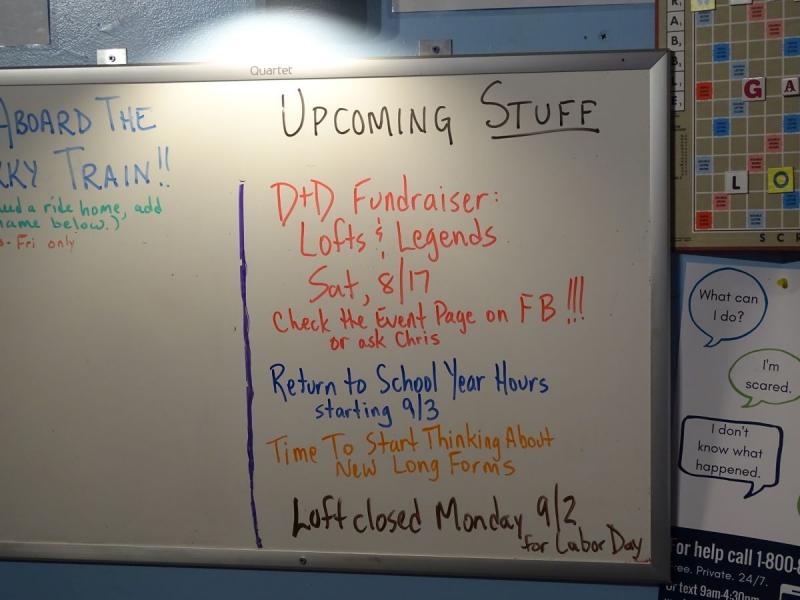 Quartet
ABOARD THE
TRAIN!!
a ride home, add
name below.)
Fri only
UPCOMING STUFF
D+D Fundraiser:
Lofts & Legends
Sat, 8/17
Check the Event Page on FB!!!
or ask Chris
Return to School Year Hours
starting 9/3
Time To Start Thinking About
New Long Forms
Loft closed Monday 9/2
for Labor Day
G A
L O
S C R
What can
I do?
I'm
scared.
I don't
know what
happened.
For help call 1-800-
Free. Private. 24/7.
Or text 9am-4:30pm